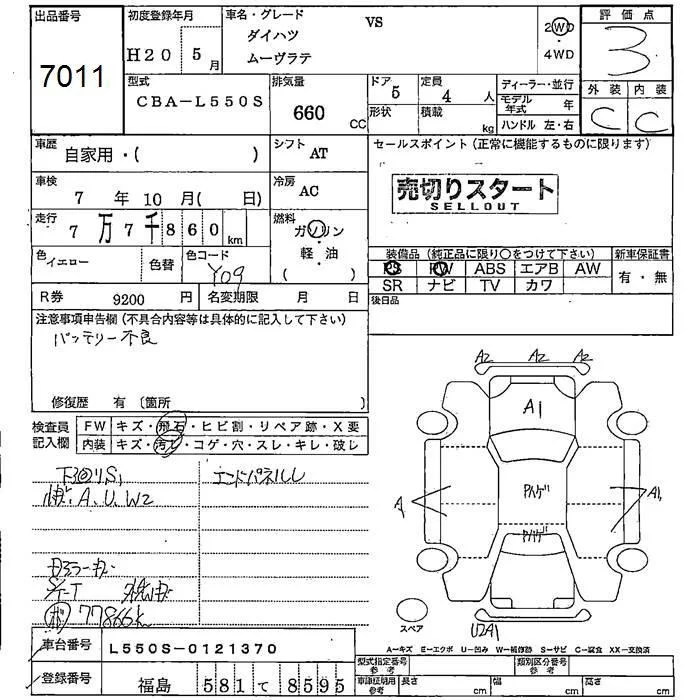 出品番号
7011
初度登録年月
H20 5月
車名・グレード
VS
ダイハツ
ムーヴラテ
2WD
・
4WD
評価点
3
外装 内装
C C
型式
CBA-L550S
排気量
660 CC
ドア 5
形状
定員 4 人
積載 kg
ディーラー・並行
モデル年式 年
ハンドル 左・右
車歴
自家用・( )
シフト
AT
セールスポイント (正常に機能するものに限ります)
売切りスタート
SELLOUT
車検
7 年 10 月( 日)
冷房
AC
走行
7万7千860km
燃料
ガソリン
・
軽・油
( )
色 イエロー
色替
色コード
Y09
装備品 (純正品に限り○をつけて下さい)
PS PW ABS エアB AW
SR ナビ TV カワ
新車保証書
有・無
R券 9200 円
名変期限 月 日
後日品
注意事項申告欄 (不具合内容等は具体的に記入して下さい)
バッテリー不良
修復歴 有 〔箇所
検査員記入欄
FW キズ・飛石・ヒビ割・リペア跡・X要
内装 キズ・汚レ・コゲ・穴・スレ・キレ・破レ
下回りS1
A、U、W2
エンドパネルU
77866k
A2 A2 A2
A1
A1
U2A1
スペア
A-キズ E-エクボ U-凹み W-補修跡 S-サビ C-腐食 XX-交換済
車台番号
L550S-0121370
登録番号
福島 581 て 8595
型式指定番号
参考
類別区分番号
参考
車庫証明用
参考
長さ cm
幅 cm
高さ cm